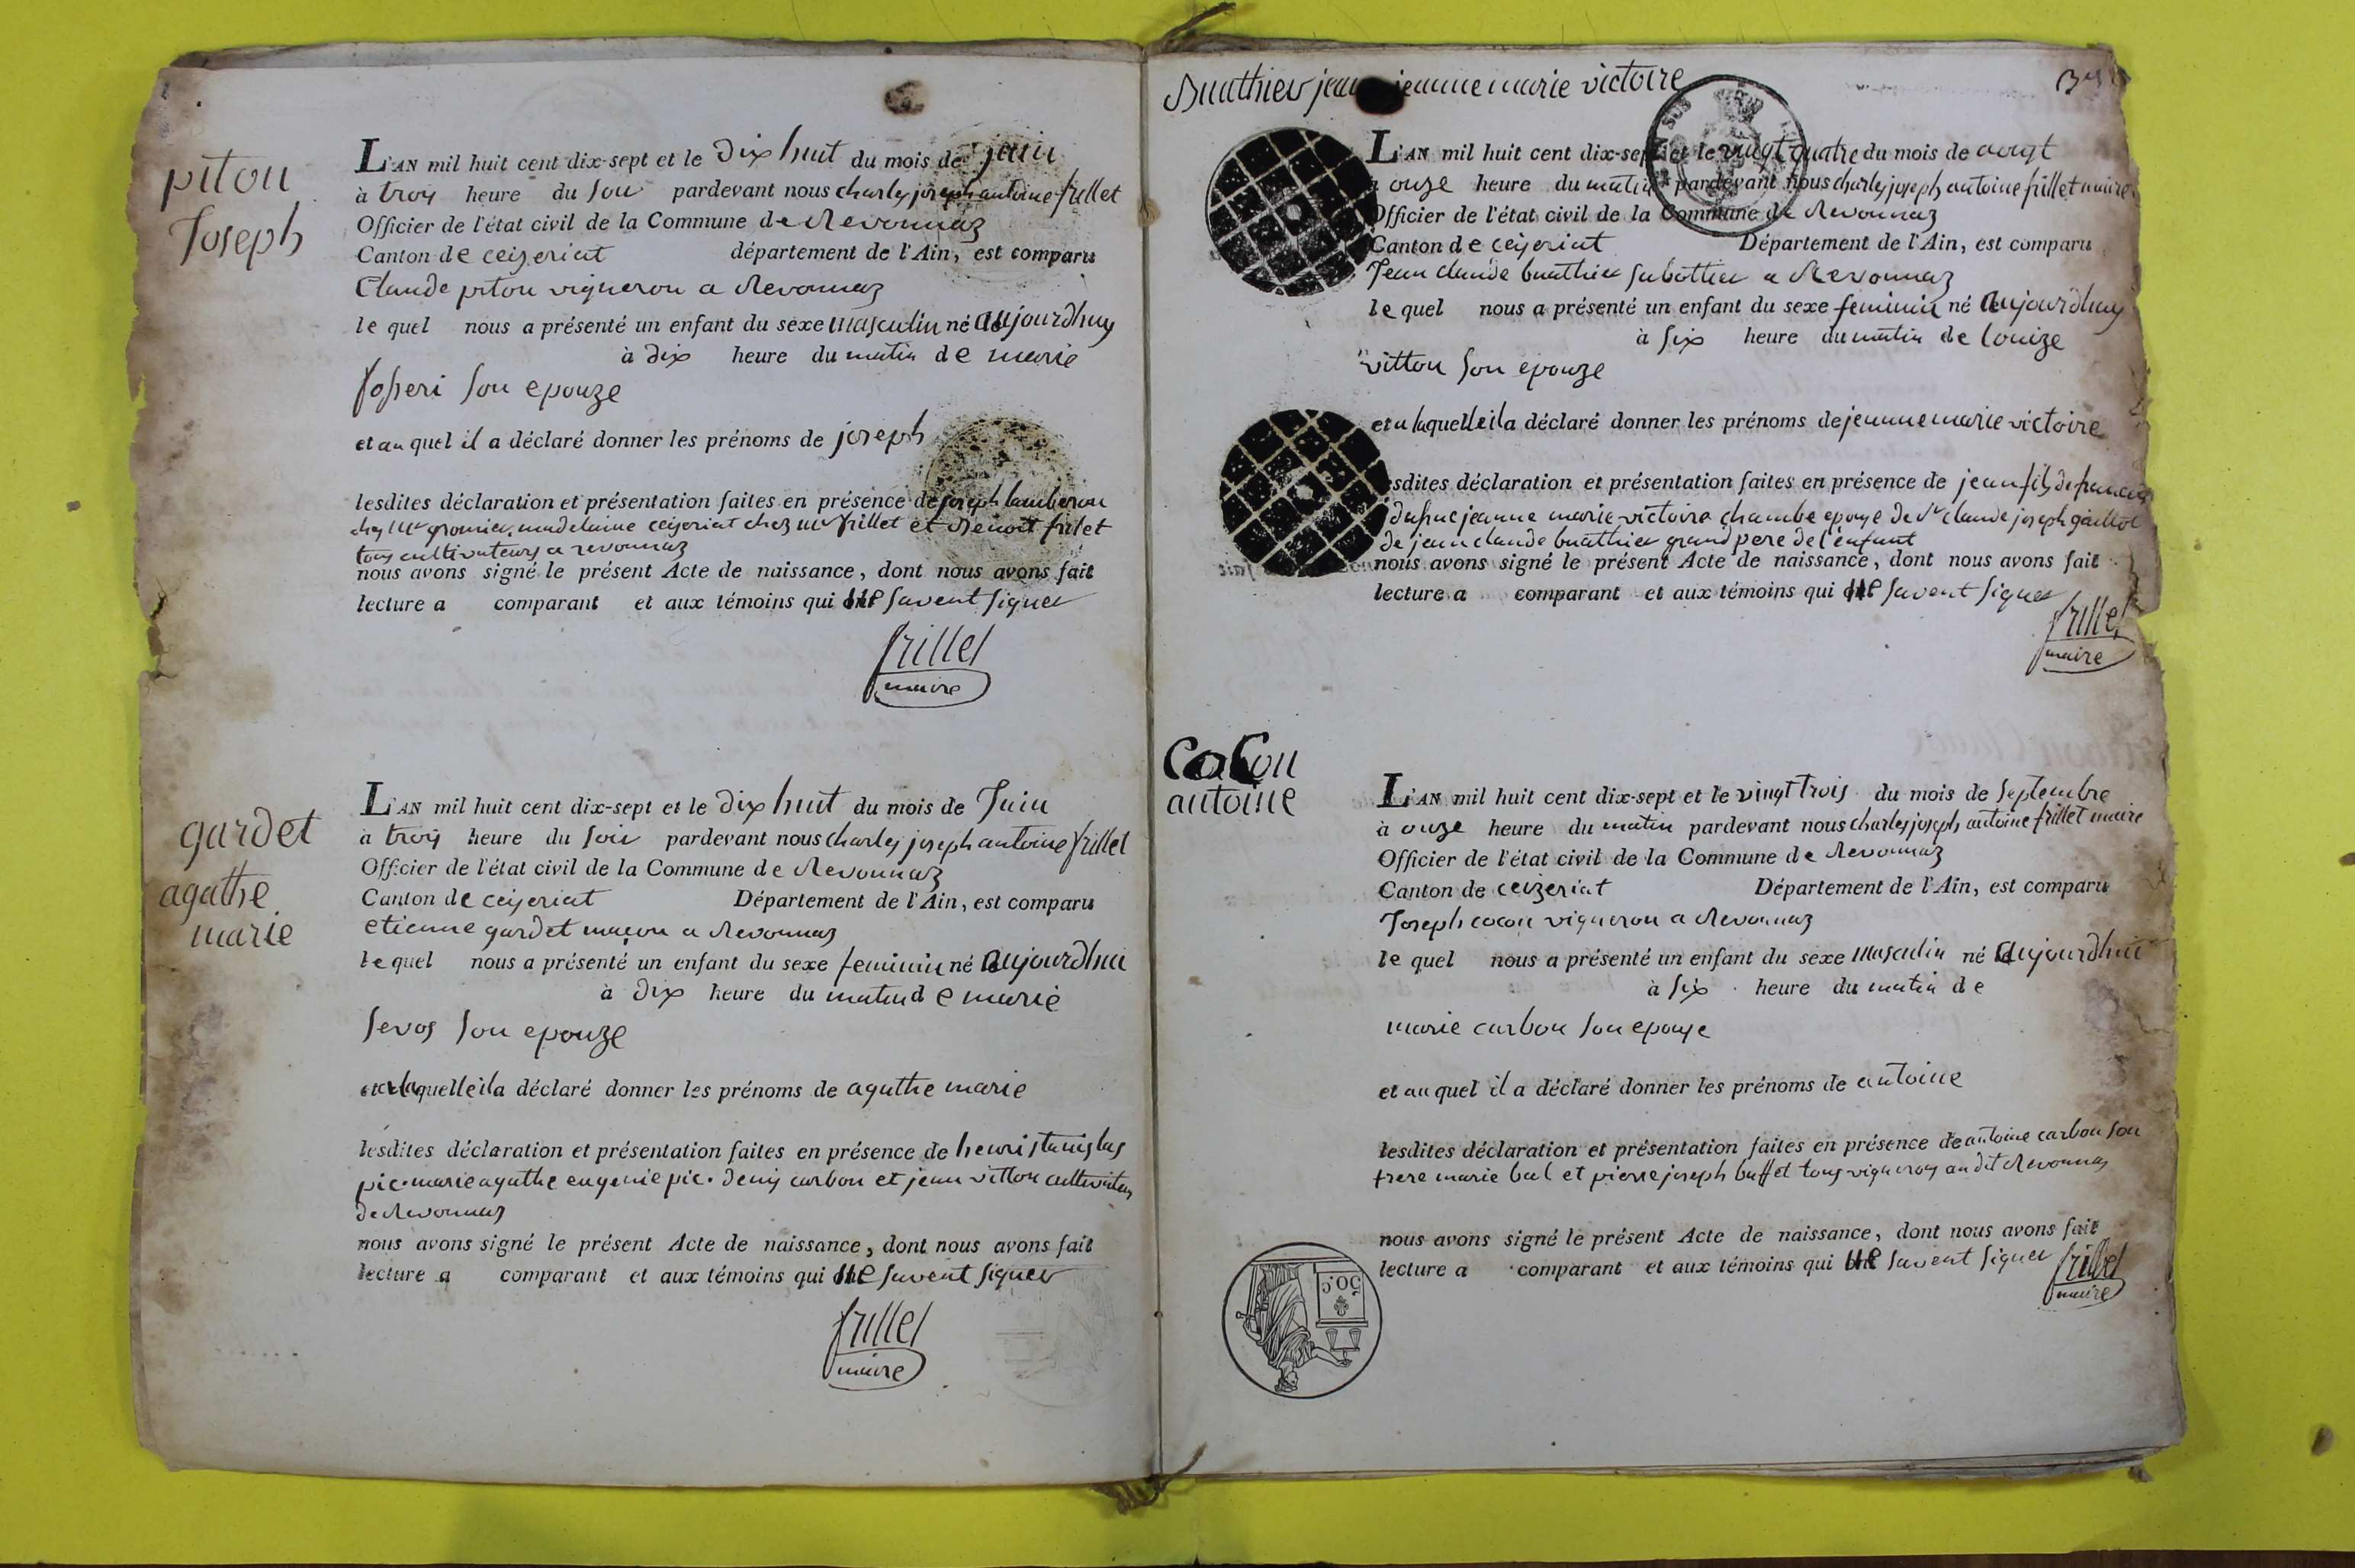 piton
Joseph
L'AN mil huit cent dix-sept et le dix huit du mois de juin
à troy heure du soir pardevant nous charles joseph antoine frillet
Officier de l'état civil de la Commune de Revonnaz
Canton de ceizeriat département de l'Ain, est comparu
Claude piton vigneron a Revonnaz
le quel nous a présenté un enfant du sexe masculin né aujourdhuy
à dix heure du matin de marie
son epouze
et au quel il a déclaré donner les prénoms de joseph
lesdites déclaration et présentation faites en présence de joseph lamberon
chez Mr madelaine ceyzeriat chez mr frillet et Benoit frilet
tous cultivateurs a revonnaz
nous avons signé le présent Acte de naissance, dont nous avons fait
lecture a comparant et aux témoins qui ne savent signer
frillet
maire
gardet
agathe
marie
L'AN mil huit cent dix-sept et le dix huit du mois de Juin
à troy heure du soir pardevant nous charles joseph antoine frillet
Officier de l'état civil de la Commune de Revonnaz
Canton de ceyzeriat Département de l'Ain, est comparu
etienne gardet maçon a Revonnaz
le quel nous a présenté un enfant du sexe feminin né aujourdhui
à dix heure du matin de marie
sevos son epouze
et a laquelle il a déclaré donner les prénoms de agathe marie
lesdites déclaration et présentation faites en présence de henri stanislas
pic. marie agathe eugenie pic. denis carbon et jean vitton cultivateurs
de Revonnaz
nous avons signé le présent Acte de naissance, dont nous avons fait
lecture a comparant et aux témoins qui ne savent signer
frillet
maire
Buathier jeanne marie victoire
L'AN mil huit cent dix-sept et le vingt quatre du mois de aoust
à onze heure du matin pardevant nous charles joseph antoine frillet maire
Officier de l'état civil de la Commune de Revonnaz
Canton de ceizeriat Département de l'Ain, est comparu
Jean claude buathier sabottier a Revonnaz
le quel nous a présenté un enfant du sexe feminin né aujourdhuy
à six heure du matin de Louize
vitton son epouze
et a laquelle il a déclaré donner les prénoms de jeanne marie victoire
lesdites déclaration et présentation faites en présence de jean fils de francois
jeanne marie victoire chambe epouze de Sr claude joseph
de jean claude buathier grand pere de l'enfant
nous avons signé le présent Acte de naissance, dont nous avons fait
lecture a comparant et aux témoins qui ne savent signer
frillet
maire
Cocon
antoine
L'AN mil huit cent dix-sept et le vingt trois du mois de Septembre
à onze heure du matin pardevant nous charles joseph antoine frillet maire
Officier de l'état civil de la Commune de Revonnaz
Canton de ceizeriat Département de l'Ain, est comparu
Joseph cocon vigneron a Revonnaz
le quel nous a présenté un enfant du sexe masculin né aujourdhui
à six heure du matin de
marie carbon son epouse
et au quel il a déclaré donner les prénoms de antoine
lesdites déclaration et présentation faites en présence de antoine carbon son
frere marie bal et pierre joseph buffet tous vignerons audit Revonnaz
nous avons signé le présent Acte de naissance, dont nous avons fait
lecture a comparant et aux témoins qui ne savent signer
frillet
maire
50 c.